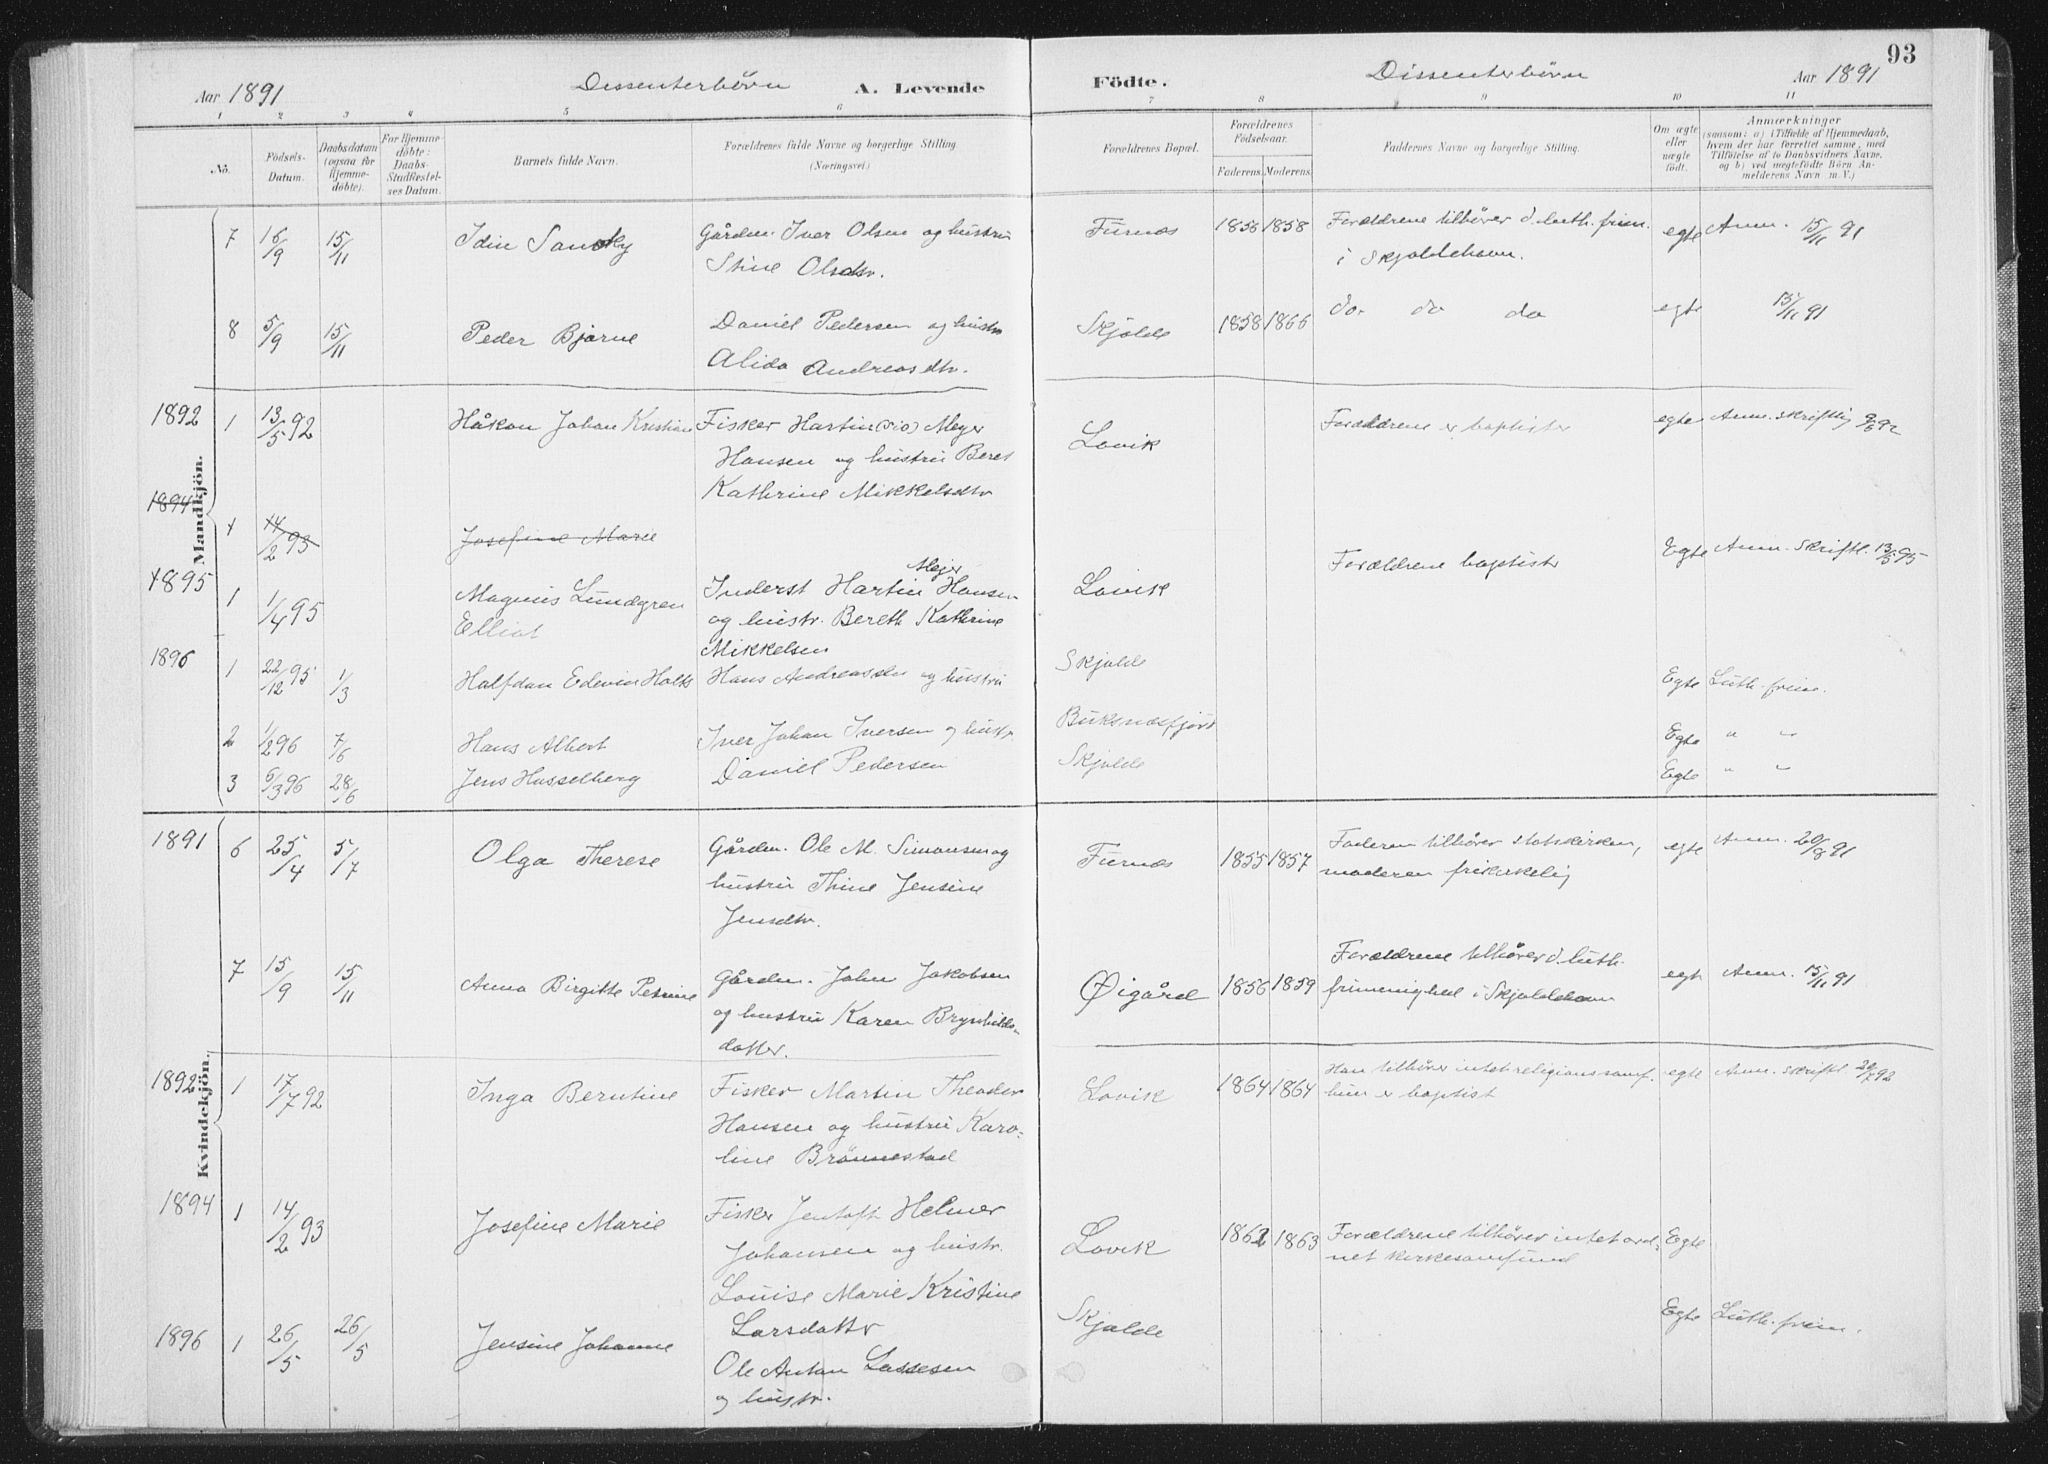 93
Aar 1891 Dissenterbörn A. Levende Födte. Dissenterbörn Aar 1891
1 2 3 4 5 6 7 8 9 10 11
No. Födsels-Datum. Daabsdatum (ogsaa for Hjemmedöbte). For Hjemmedöbte: Daabs-Stadfæstelses Datum. Barnets fulde Navn. Forældrenes fulde Navne og borgerlige Stilling (Næringsvei.) Forældrenes Bopæl. Forældrenes Födselsaar. Faderens. Moderens. Faddernes Navne og borgerlige Stilling. Om ægte eller uægte födt. Anmærkninger (saasom: a) i Tilfælde af Hjemmedaab, hvem der har forrettet samme, med Tilföielse af to Daabsvidners Navne, og b) ved uægtefödte Börn Anmelderens Navn m. V.)
Mandkjön.
7 16/9 15/11 Idin Gårdm. Iver Olsen og hustru Furnæs 1856 1858 Forældrene tilhører d. luth. frim. egte Anm. 15/11 91
Stine Olsdtr. i Skjoldehavn.
8 5/9 15/11 Peder Bjarne Daniel Pedersen og hustr Skjolde 1858 1866 do. do do egte 15/11 91
Alida Andreasdtr.
1892 1 13/5 92 Håkon Johan Kristine Fisker Hartin (sic) Meyer Lovik Forældrene er baptister egte Anm. skriftlig 9/6 92
Hansen og hustru Beret
Kathrine Mikkelsdtr
1894
1 14/2 93 Josefine Marie
1895 Meyer
1 1/4 95 Magnus Lundgren Inderst Hartin Hansen Lovik Forældrene baptistr Egte Anm. skriftl. 13/5 95
Elliot og hustr. Bereth Kathrine
Mikkelsen
1896 1 22/12 95 1/3 Halfdan Edevin Holts Hans og hustru Skjolde Egte Luth. frim.
2 1/2 96 7/6 Hans Albert Iver Johan Iversen og hustr. Buksnæsfjord Egte " "
3 5/3 96 28/6 Jens Hasselberg Daniel Pedersen Skjolde Egte " "
Kvindekjön.
1891 6 25/4 5/7 Olga Therese Gårdm. Ole M. Simonsen og Furnæs 1855 1857 Faderen tilhører statskirken, egte Anm. 20/8 91
hustru Thine Jensine moderen frikirkelig
Jensdtr.
7 15/9 15/11 Anna Birgitte Petrine Gårdm. John Jakobsen Øigård 1856 1859 Forældrene tilhører d. luth. egte Anm. 15/11 91
og hustru Karen Brynhilds- frimenighed i Skjoldehavn
datter.
1892 1 17/7 92 Inga Berntine Fisker Martin Theodor Lovik 1864 1864 Han tilhører intet religionssamf. egte Anm. skriftl 20/7 92
Hansen og hustru Karo- hun er baptist
line Brønnestad
1894 1 14/2 93 Josefine Marie Fisker Jentoft Helmer Lovik 1862 1863 Forældrene tilhører intet ord- Egte
Johansen og hustr. net kirkesamfund
Louise Marie Kristine
Larsdattr
1896 1 26/5 26/5 Jensine Johanne Ole Anton Lassesen Skjolde Egte Luth. frim.
og hustr.